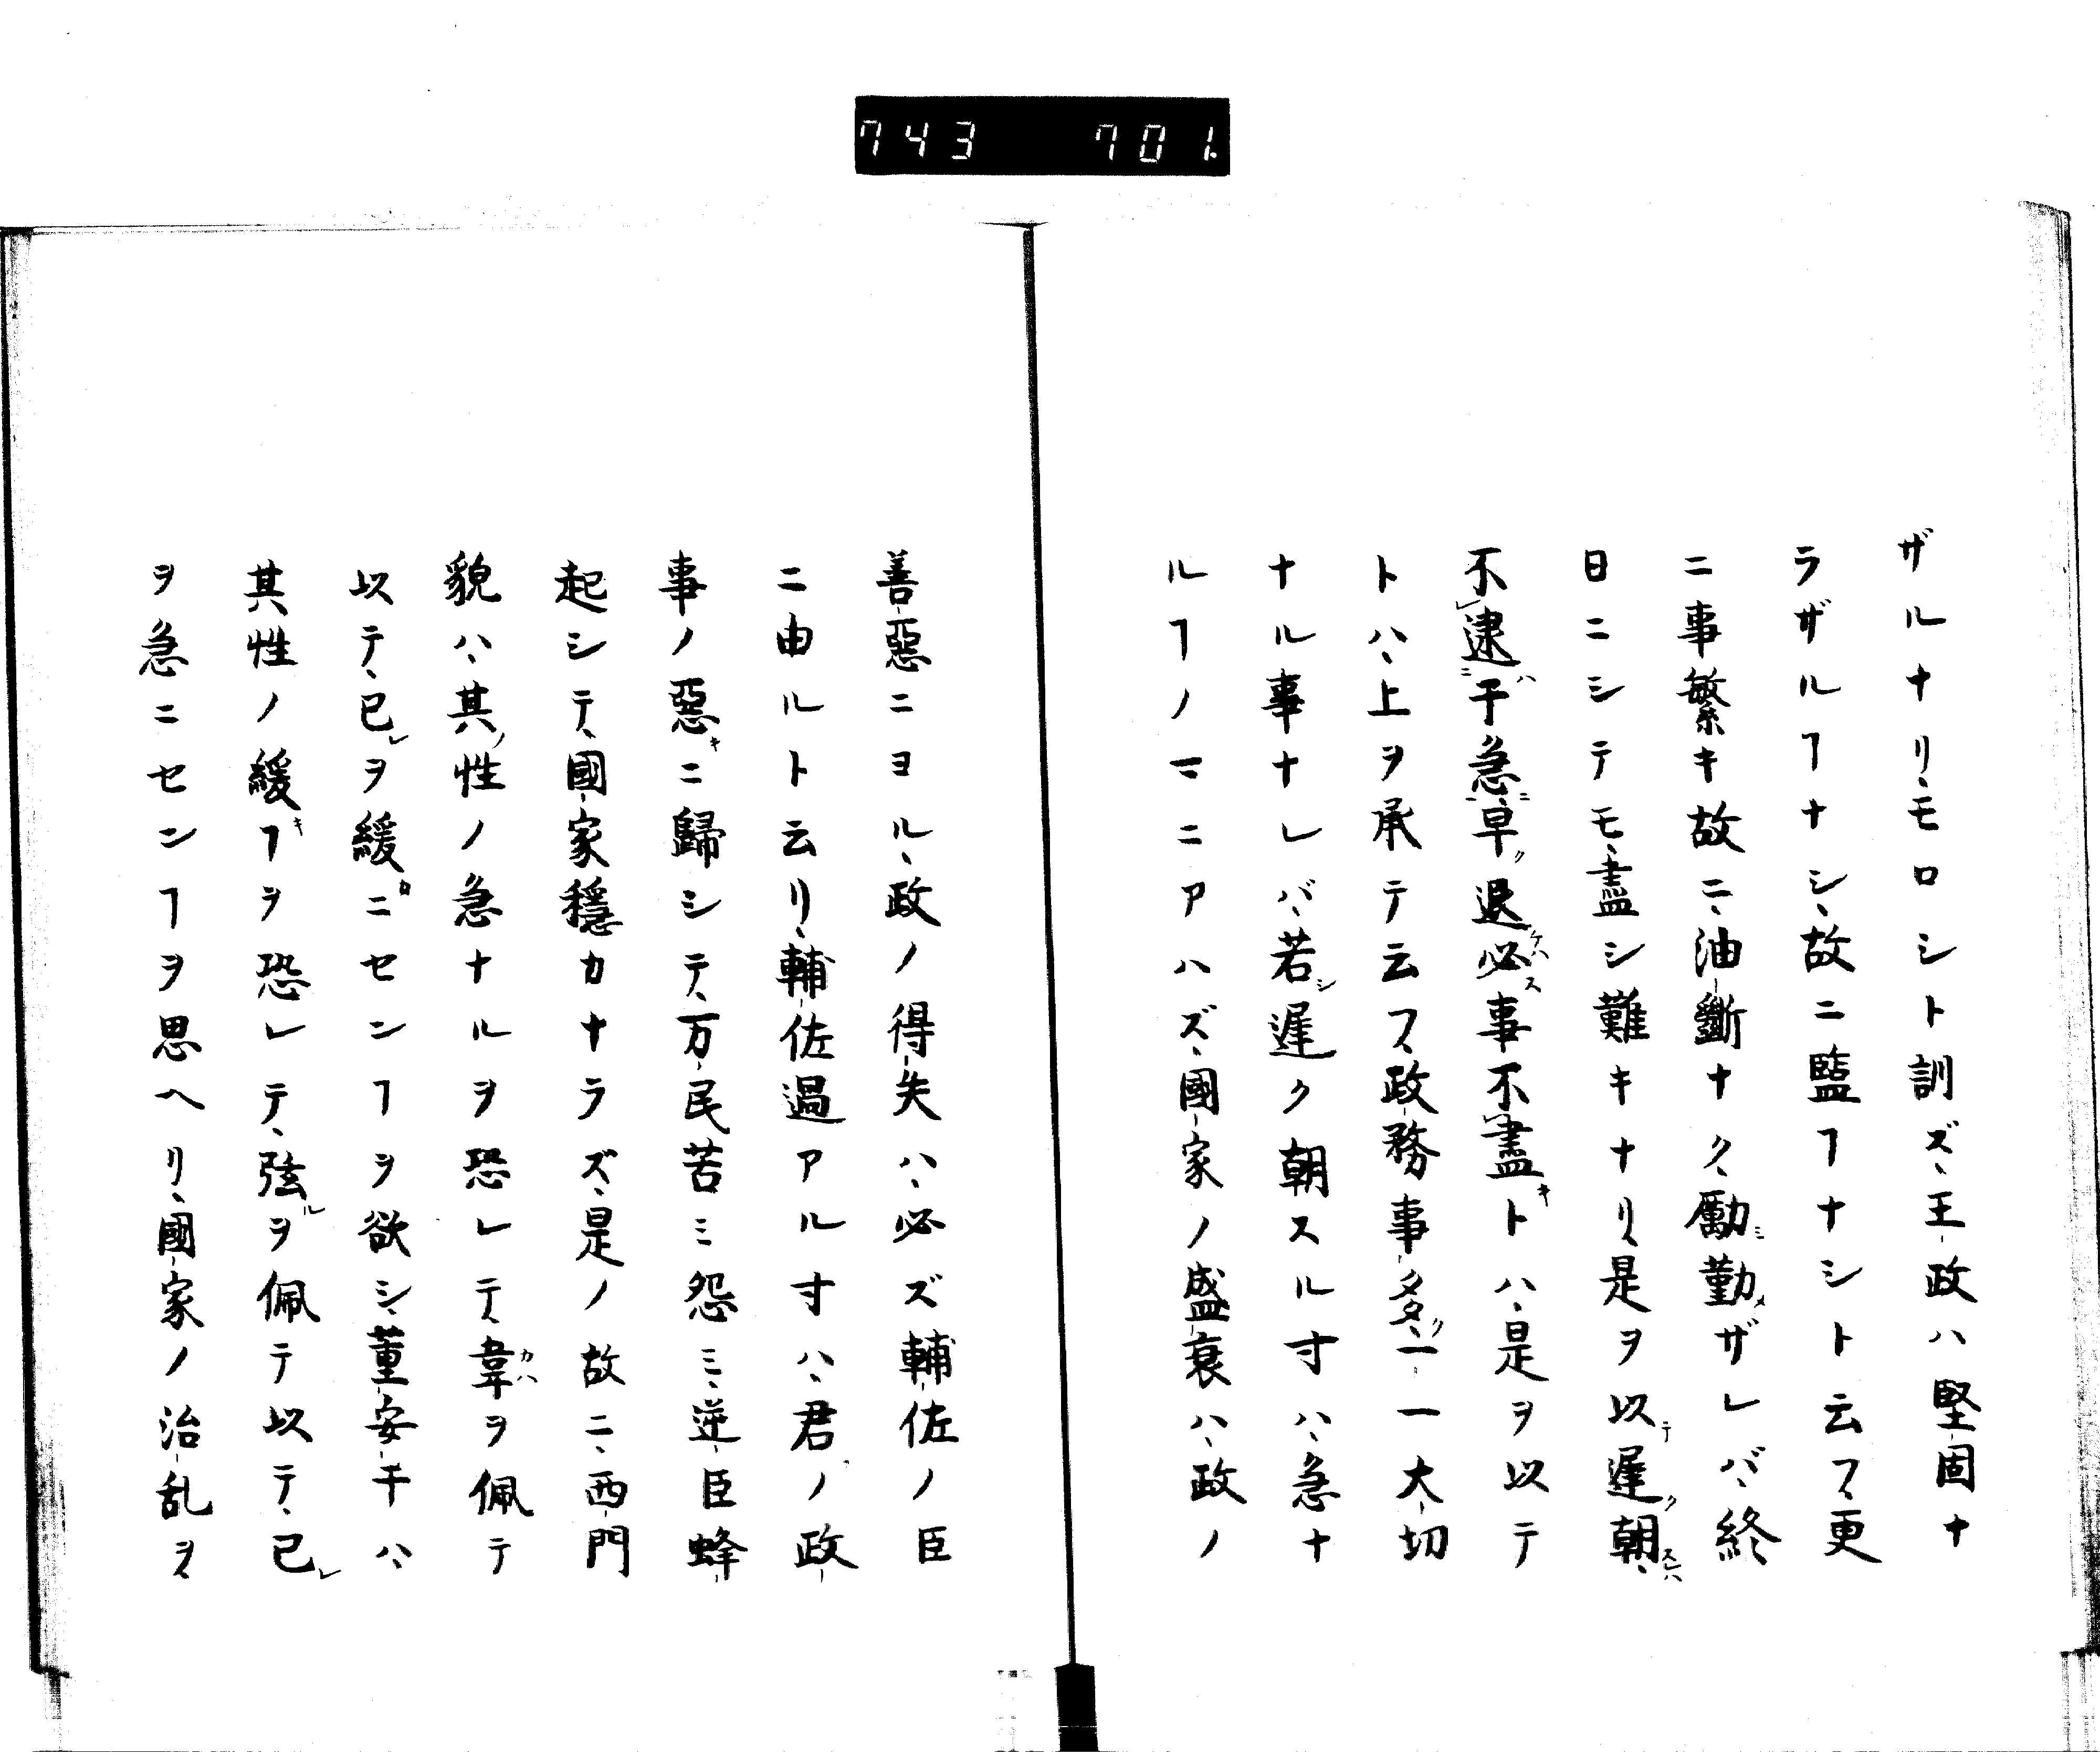 743 701
ザルナリ、モロシト訓ズ、王政ハ堅固ナ
ラザルヿナシ、故ニ盬ヿナシト云フ、更
ニ事繁キ故ニ、油斷ナク、勵ミ勤メザレバ、終
日ニシテモ、盡シ難キナリ、是ヲ以テ遲ク朝スレハ、
不レ逮ハ二于急ニ一、早ク退ケハ必ス事不盡キトハ、是ヲ以テ
トハ、上ヲ承テ云フ、政務事多ク、一一大切
ナル事ナレバ、若シ遲ク朝スル寸ハ、急ナ
ルヿノマニアハズ、國家ノ盛衰ハ、政ノ
善惡ニヨル、政ノ得失ハ、必ズ輔佐ノ臣
ニ由ルト云リ、輔佐過アル寸ハ、君ノ政
事ノ惡キニ歸シテ、万民苦ミ怨ミ、逆臣蜂
起シテ、國家穩カナラズ、是ノ故ニ、西門
貌ハ、其ノ性ノ急ナルヲ恐レテ、韋カハヲ佩テ
以テ、已レヲ緩ロニセンヿヲ欲シ、董安于ハ、
其性ノ緩キヿヲ恐レテ、弦ルヲ佩テ以テ、已レ
ヲ急ニセンヿヲ思ヘリ、國家ノ治乱ヲ、